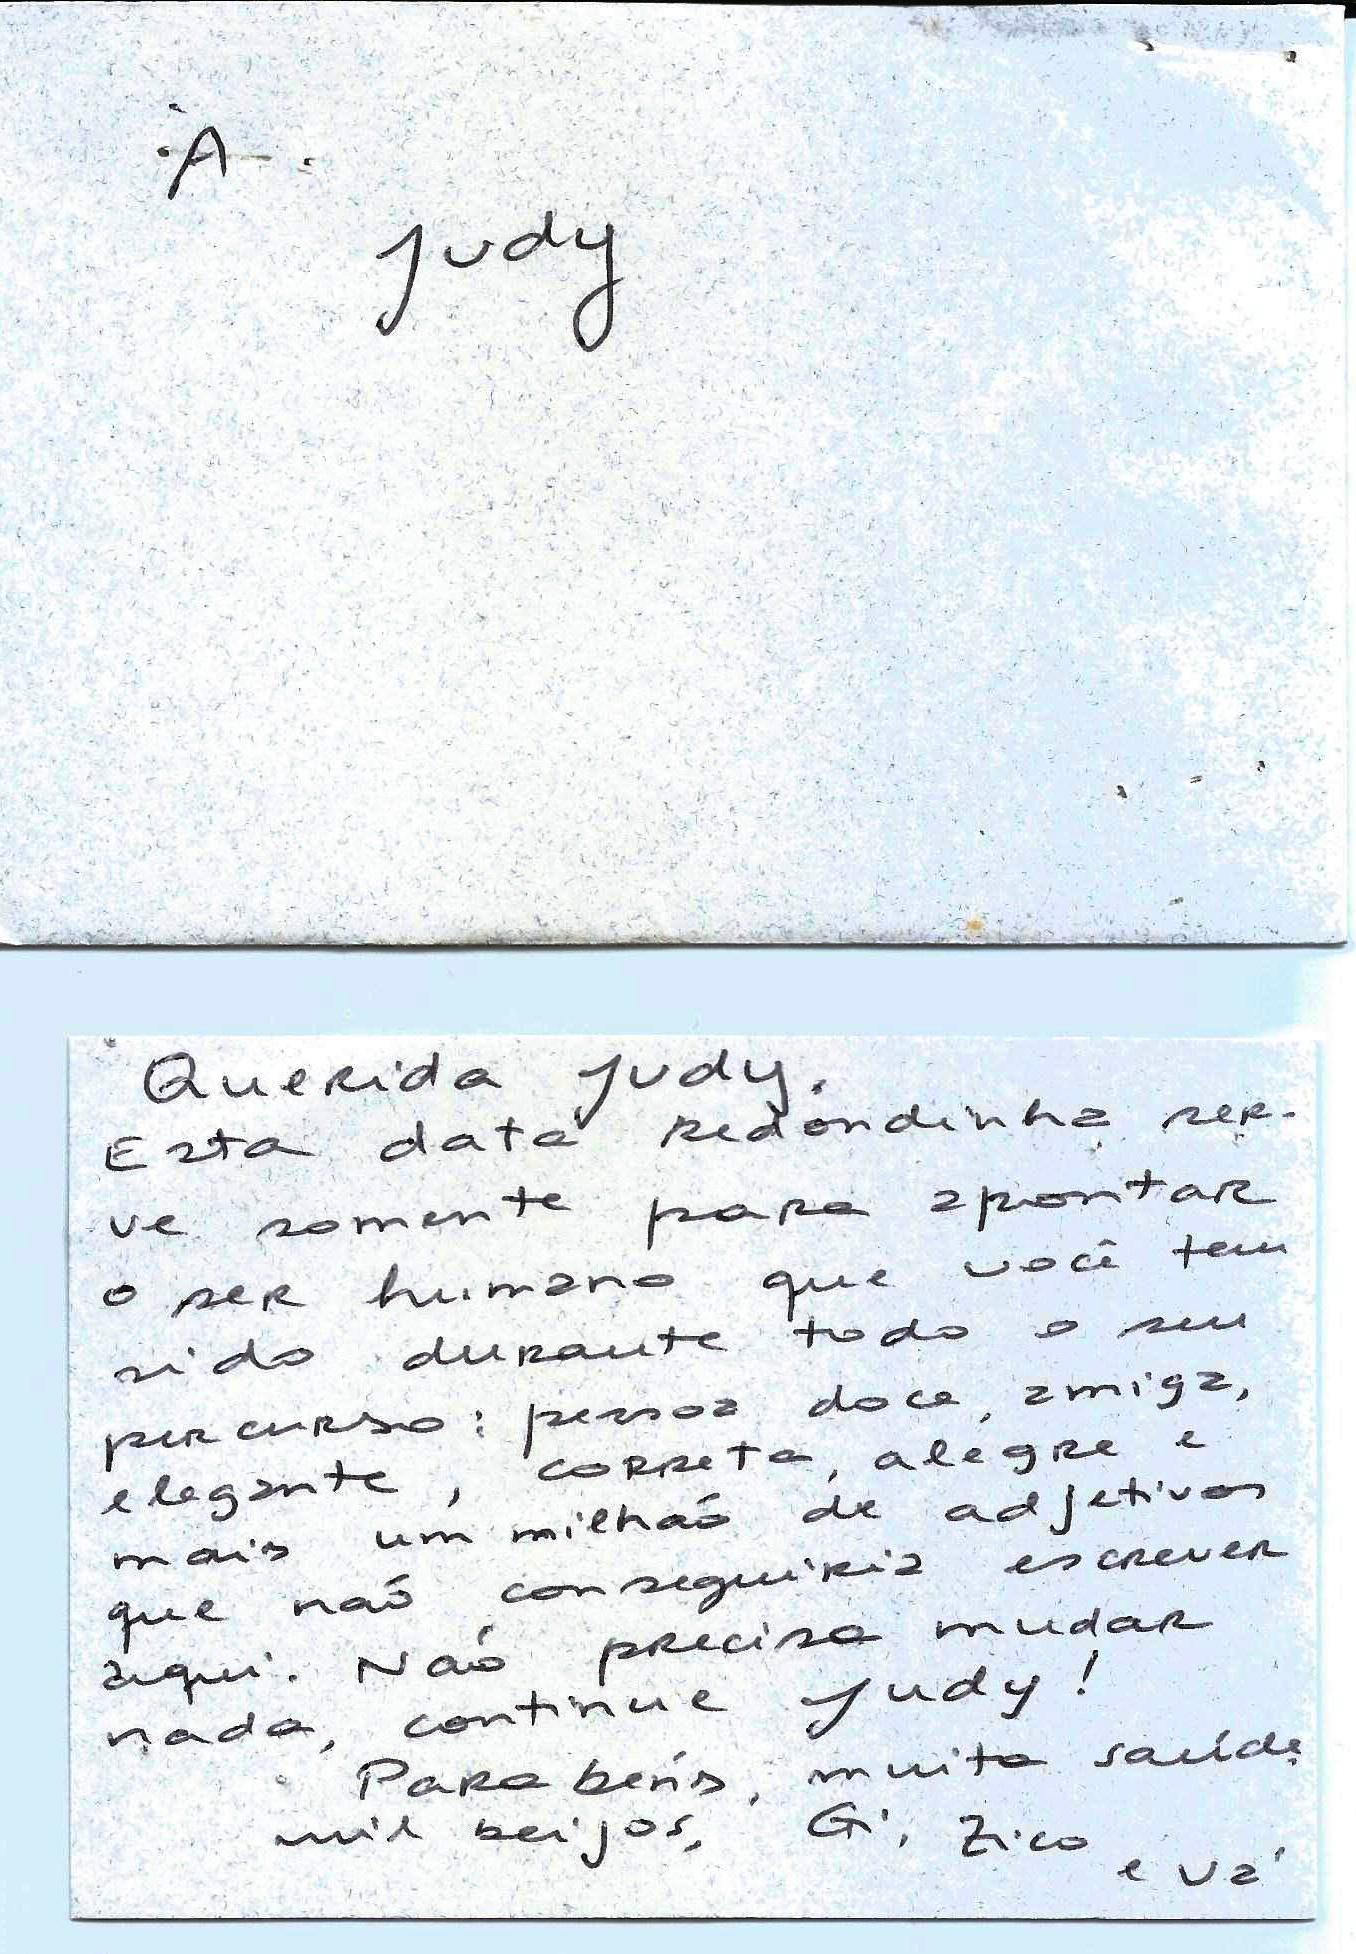 À
Judy
Querida Judy,
Esta data redondinha ser-
ve somente para apontar
o ser humano que você tem
sido durante todo o seu
percurso: pessoa doce, amiga,
elegante, correta, alegre e
mais um milhão de adjetivos
que não conseguiria escrever
aqui. Não precisa mudar
nada, continue Judy!
Parabéns, muita saúde
mil beijos, Gi, Zico
e Vá